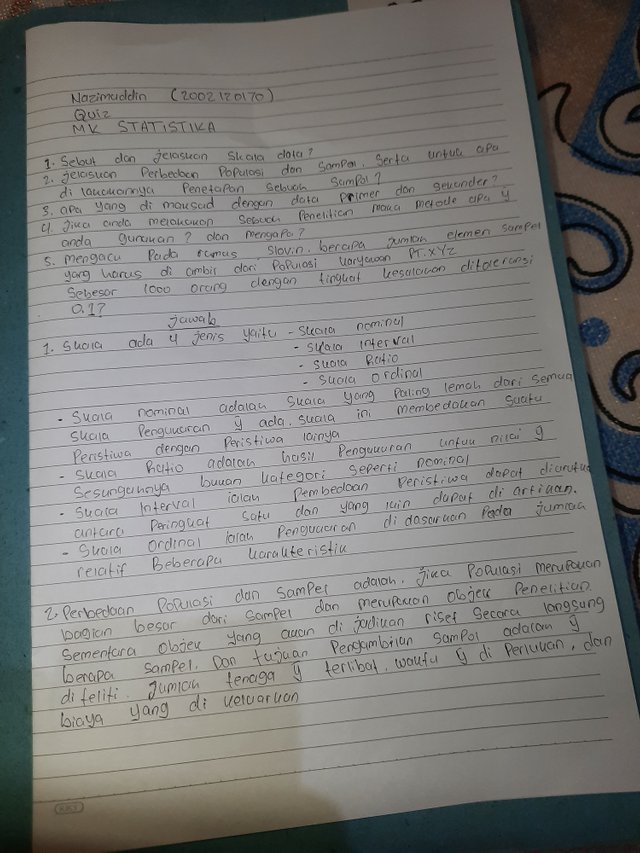 Nazimuddin (2002120170)
Quiz
MK STATISTIKA
1. Sebut dan jelaskan Skala data?
2. jelaskan Perbedaan Populasi dan Sampel. Serta untuk apa
di lakukannya Penetapan Sebuah Sampel?
3. apa yang di maksud dengan data Primer dan sekunder?
4. Jika anda melakukan Sebuah Penelitian maka metode apa y
anda gunakan? dan mengapa?
5. mengacu Pada rumus Slovin. berapa jumlah elemen sampel
yang harus di ambil dari Populasi karyawan PT. XYZ
Sebesar 1000 orang dengan tingkat kesalahan ditoleransi
0.1?
jawab
1. Skala ada 4 jenis yaitu - Skala nominal
- Skala Interval
- Skala Ratio
- Skala ordinal
- Skala nominal adalah Skala yang Paling lemah dari semua
Skala Pengukuran y ada. Skala ini membedakan Suatu
Peristiwa dengan Peristiwa lainya
- Skala Ratio adalah hasil Pengukuran untuk nilai y
Sesungguhnya bukan kategori seperti nominal
- Skala Interval ialah Pembedaan Peristiwa dapat diurutkan
antara Peringkat Satu dan yang lain dapat di artikan.
- Skala Ordinal ialah Pengukuran di dasarkan Pada jumlah
relatif Beberapa karakteristik
2. Perbedaan Populasi dan Sampel adalah. jika Populasi merupakan
bagian besar dari Sampel dan merupakan Objek Penelitian.
Sementara Objek yang akan di jadikan riset Secara langsung
berapa Sampel. Dan tujuan Pengambilan Sampel adalah y
di teliti. Jumlah tenaga y terlibat, waktu y di Perlukan, dan
biaya yang di keluarkan